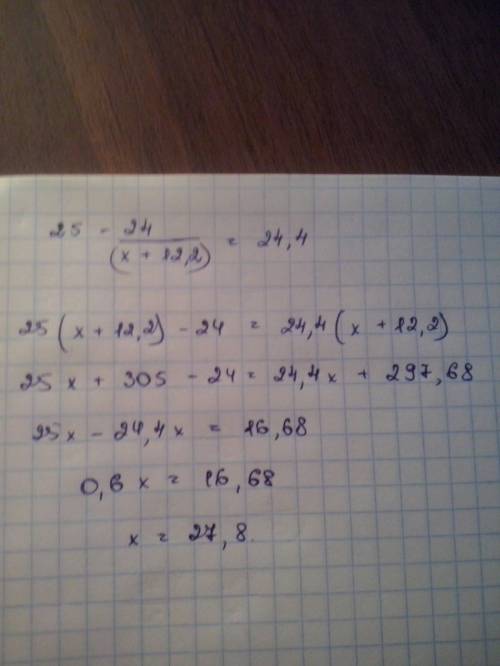 25 - 24/(x + 12,2) = 24,4
25(x + 12,2) - 24 = 24,4(x + 12,2)
25x + 305 - 24 = 24,4x + 297,68
25x - 24,4x = 16,68
0,6x = 16,68
x = 27,8.